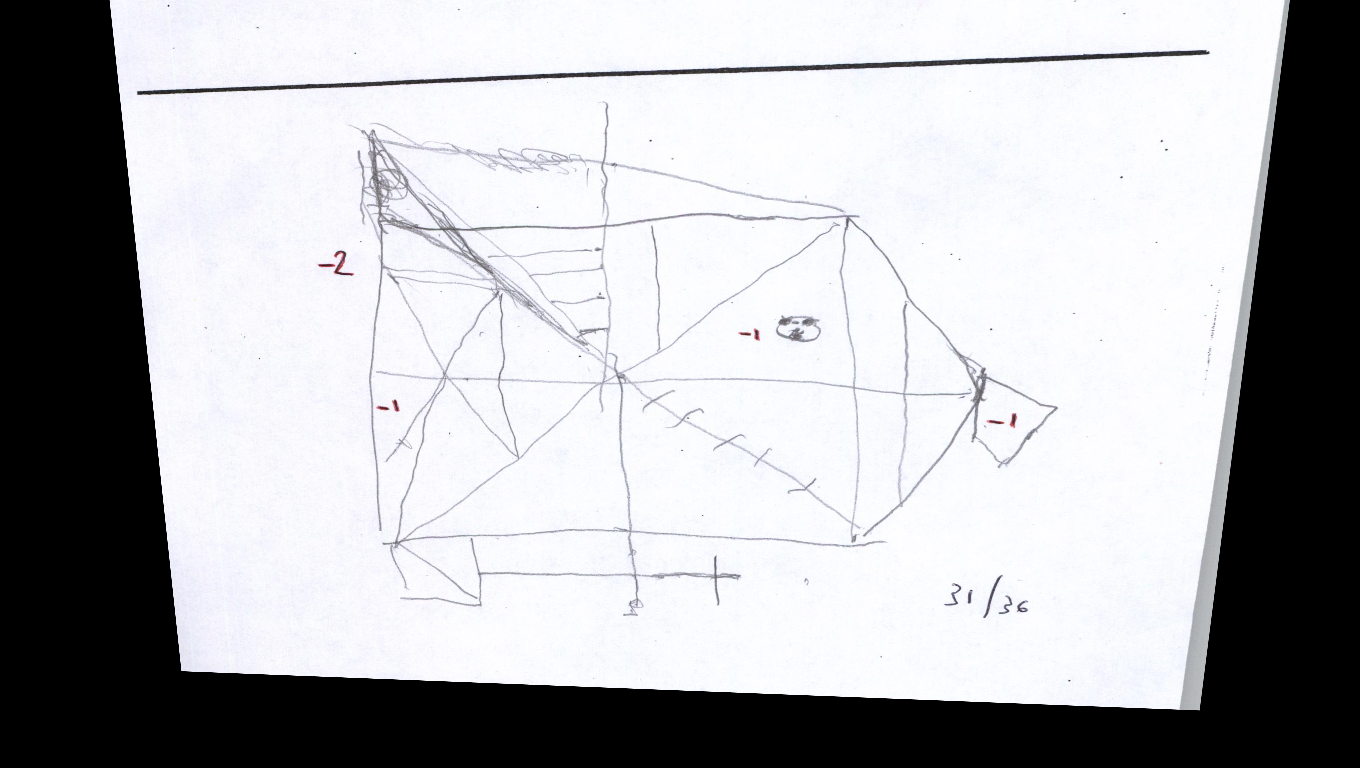 -2
-1
-1
-1
31/36